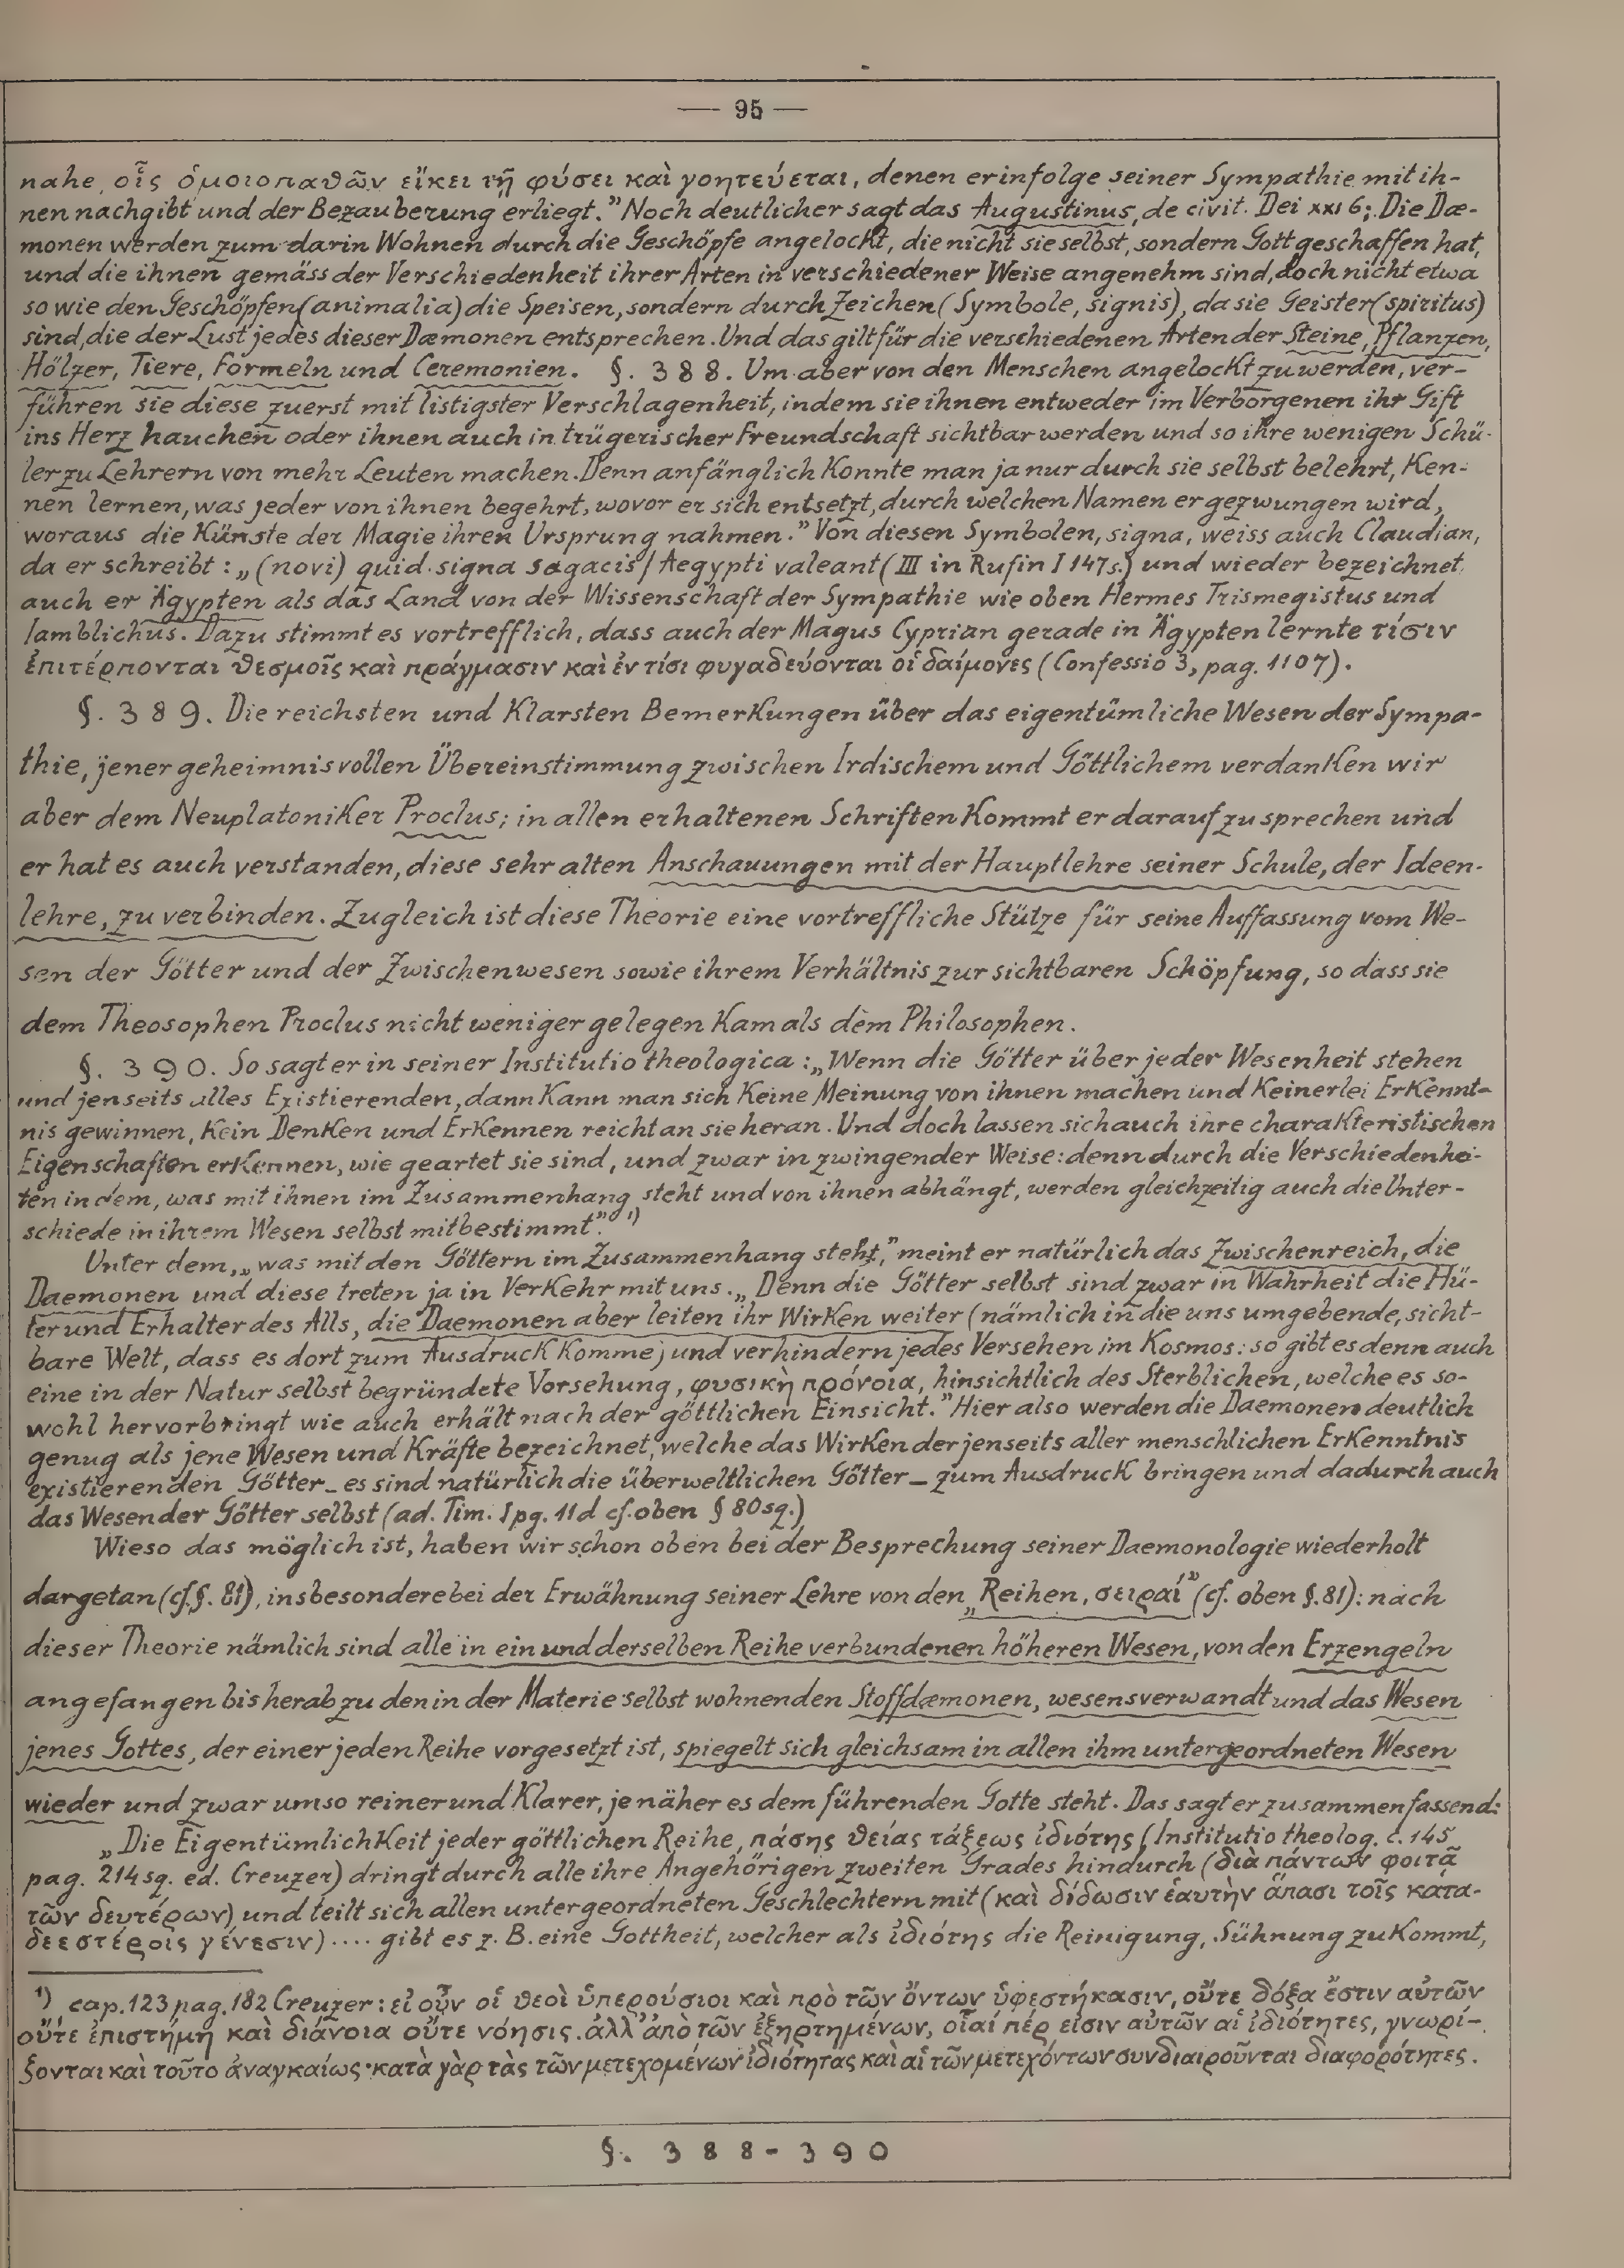 — 95 —
nahe, οἷς ὁμοιοπαθῶν εἴκει τῇ φύσει καὶ γοητεύεται, denen er infolge seiner Sympathie mit ih-
nen nachgibt und der Bezauberung erliegt." Noch deutlicher sagt das Augustinus, de civit. Dei XXI 6: „Die Dæ-
monen werden zum darin Wohnen durch die Geschöpfe angelockt, die nicht sie selbst, sondern Gott geschaffen hat,
und die ihnen gemäss der Verschiedenheit ihrer Arten in verschiedener Weise angenehm sind, doch nicht etwa
so wie den Geschöpfen (animalia) die Speisen, sondern durch Zeichen (Symbole, signis), da sie Geister (spiritus)
sind, die der Lust jedes dieser Dæmonen entsprechen. Und das gilt für die verschiedenen Arten der Steine, Pflanzen,
Hölzer, Tiere, Formeln und Ceremonien. §. 388. Um aber von den Menschen angelockt zu werden, ver-
führen sie diese zuerst mit listigster Verschlagenheit, indem sie ihnen entweder im Verborgenen ihr Gift
ins Herz hauchen oder ihnen auch in trügerischer Freundschaft sichtbar werden und so ihre wenigen Schü-
ler zu Lehrern von mehr Leuten machen. Denn anfänglich konnte man ja nur durch sie selbst belehrt, ken-
nen lernen, was jeder von ihnen begehrt, wovor er sich entsetzt, durch welchen Namen er gezwungen wird,
woraus die Künste der Magie ihren Ursprung nahmen." Von diesen Symbolen, signa, weiss auch Claudian,
da er schreibt: „(novi) quid signa sagacis / Aegypti valeant (III in Rufin I 147s.) und wieder bezeichnet
auch er Ägypten als das Land von der Wissenschaft der Sympathie wie oben Hermes Trismegistus und
Iamblichus. Dazu stimmt es vortrefflich, dass auch der Magus Cyprian gerade in Ägypten lernte τίσιν
ἐπιτέρπονται θεσμοῖς καὶ πράγμασιν καὶ ἐν τίσι φυγαδεύονται οἱ δαίμονες (Confessio 3, pag. 1107).
§. 389. Die reichsten und klarsten Bemerkungen über das eigentümliche Wesen der Sympa-
thie, jener geheimnisvollen Übereinstimmung zwischen Irdischem und Göttlichem verdanken wir
aber dem Neuplatoniker Proclus; in allen erhaltenen Schriften kommt er darauf zu sprechen und
er hat es auch verstanden, diese sehr alten Anschauungen mit der Hauptlehre seiner Schule, der Ideen-
lehre, zu verbinden. Zugleich ist diese Theorie eine vortreffliche Stütze für seine Auffassung vom We-
sen der Götter und der Zwischenwesen sowie ihrem Verhältnis zur sichtbaren Schöpfung, so dass sie
dem Theosophen Proclus nicht weniger gelegen kam als dem Philosophen.
§. 390. So sagt er in seiner Institutio theologica: „Wenn die Götter über jeder Wesenheit stehen
und jenseits alles Existierenden, dann kann man sich keine Meinung von ihnen machen und keinerlei Erkennt-
nis gewinnen, kein Denken und Erkennen reicht an sie heran. Und doch lassen sich auch ihre charakteristischen
Eigenschaften erkennen, wie geartet sie sind, und zwar in zwingender Weise: denn durch die Verschiedenhei-
ten in dem, was mit ihnen im Zusammenhang steht und von ihnen abhängt, werden gleichzeitig auch die Unter-
schiede in ihrem Wesen selbst mitbestimmt". 1)
Unter dem, „was mit den Göttern im Zusammenhang steht," meint er natürlich das Zwischenreich, die
Daemonen und diese treten ja in Verkehr mit uns. „Denn die Götter selbst sind zwar in Wahrheit die Hü-
ter und Erhalter des Alls, die Daemonen aber leiten ihr Wirken weiter (nämlich in die uns umgebende, sicht-
bare Welt, dass es dort zum Ausdruck komme) und verhindern jedes Versehen im Kosmos: so gibt es denn auch
eine in der Natur selbst begründete Vorsehung, φυσικὴ πρόνοια, hinsichtlich des Sterblichen, welche es so-
wohl hervorbringt wie auch erhält nach der göttlichen Einsicht." Hier also werden die Daemonen deutlich
genug als jene Wesen und Kräfte bezeichnet, welche das Wirken der jenseits aller menschlichen Erkenntnis
existierenden Götter – es sind natürlich die überweltlichen Götter – zum Ausdruck bringen und dadurch auch
das Wesen der Götter selbst (ad. Tim. I pg. 11d cf. oben § 80sq.)
Wieso das möglich ist, haben wir schon oben bei der Besprechung seiner Daemonologie wiederholt
dargetan (cf. §. 81), insbesondere bei der Erwähnung seiner Lehre von den „Reihen, σειραί" (cf. oben §. 81): nach
dieser Theorie nämlich sind alle in ein und derselben Reihe verbundenen höheren Wesen, von den Erzengeln
angefangen bis herab zu den in der Materie selbst wohnenden Stoffdæmonen, wesensverwandt und das Wesen
jenes Gottes, der einer jeden Reihe vorgesetzt ist, spiegelt sich gleichsam in allen ihm untergeordneten Wesen
wieder und zwar umso reiner und klarer, je näher es dem führenden Gotte steht. Das sagt er zusammenfassend:
„Die Eigentümlichkeit jeder göttlichen Reihe, πάσης θείας τάξεως ἰδιότης (Institutio theolog. c. 145
pag. 214sq. ed. Creuzer) dringt durch alle ihre Angehörigen zweiten Grades hindurch (διὰ πάντων φοιτᾷ
τῶν δευτέρων) und teilt sich allen untergeordneten Geschlechtern mit (καὶ δίδωσιν ἑαυτὴν ἅπασι τοῖς κατα-
δεεστέροις γένεσιν) .... gibt es z. B. eine Gottheit, welcher als ἰδιότης die Reinigung, Sühnung zukommt,
1) cap. 123 pag. 182 Creuzer: εἰ οὖν οἱ θεοὶ ὑπερούσιοι καὶ πρὸ τῶν ὄντων ὑφεστήκασιν, οὔτε δόξα ἔστιν αὐτῶν
οὔτε ἐπιστήμη καὶ διάνοια οὔτε νόησις. ἀλλ' ἀπὸ τῶν ἐξηρτημένων, οἷαί πέρ εἰσιν αὐτῶν αἱ ἰδιότητες, γνωρί-
ζονται καὶ τοῦτο ἀναγκαίως· κατὰ γὰρ τὰς τῶν μετεχομένων ἰδιότητας καὶ αἱ τῶν μετεχόντων συνδιαιροῦνται διαφορότητες.
§. 388-390